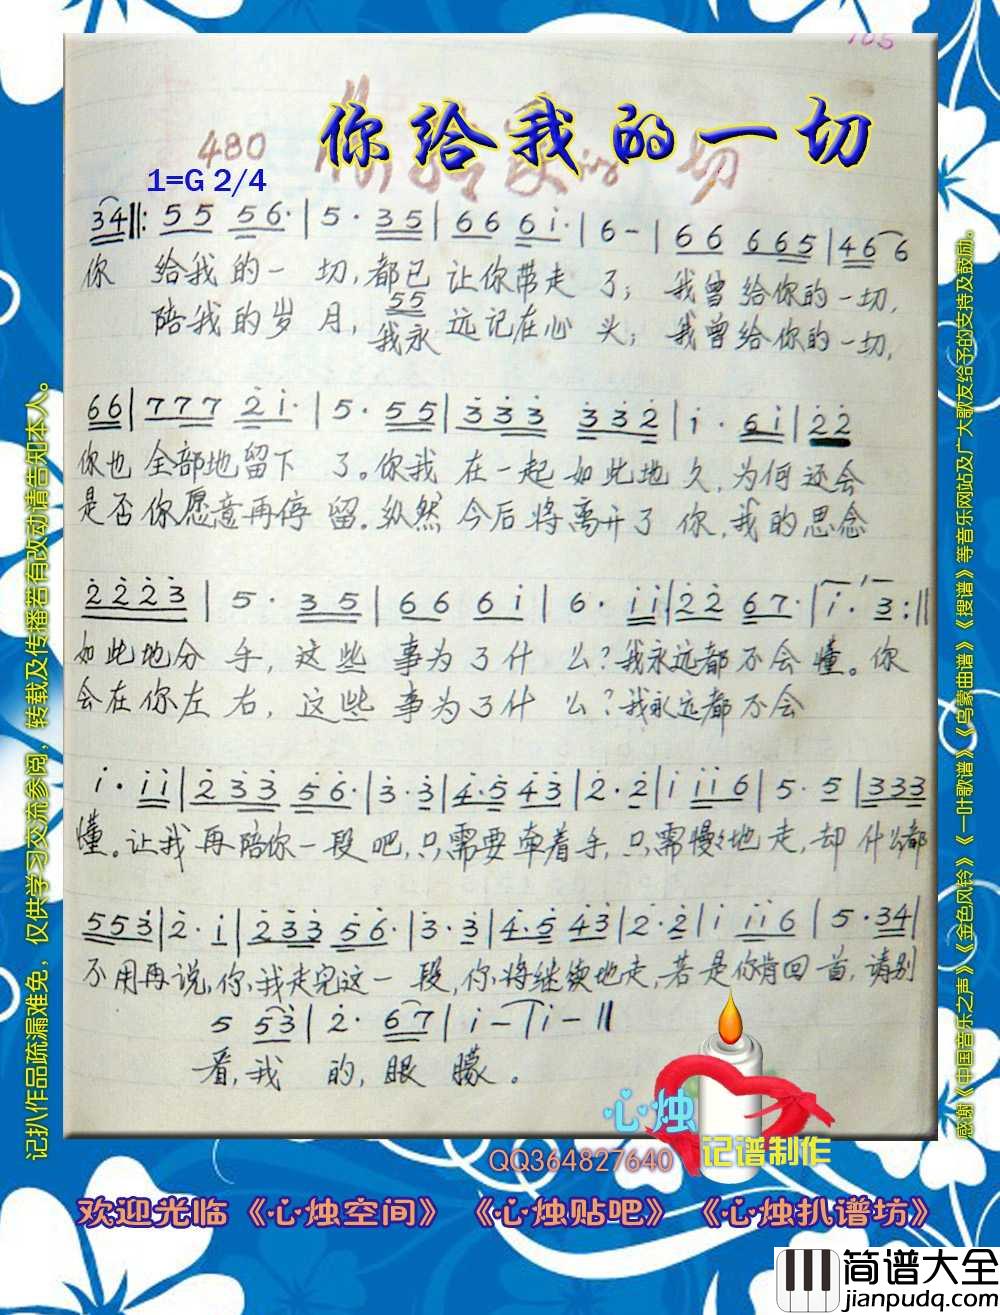 105
你给我的一切
480
1=G 2/4
3 4‖: 5 5 5 6· | 5· 3 5 | 6 6 6 i· | 6 - | 6 6 6 6 5 | 4 6 6
你 给我的一 切,都已 让你带走 了; 我曾给你的一切,
5 5
陪我的岁 月, 我永 远记在心 头; 我曾给你的一切,
6 6 | 7 7 7 2 i· | 5· 5 5 | 3 3 3 3 3 2 | i· 6 i | 2 2
你也 全部地留下 了。你我 在一起如此地 久,为何还会
是否你愿意再停 留。纵然 今后将离开了 你,我的思念
2 2 2 3 | 5· 3 5 | 6 6 6 i | 6· i i | 2 2 6 7· | i· 3 :‖
如此地分 手, 这些 事为了什 么?我永远都不会 懂。你
会在你左 右, 这些 事为了什 么?我永远都不会
i· i i | 2 3 3 5 6· | 3· 3 | 4·5 4 3 | 2· 2 | i i i 6 | 5· 5 | 3 3 3
懂。让我 再陪你一段 吧,只需要牵着手,只需慢々地走,却什么都
5 5 3 | 2· i | 2 3 3 5 6· | 3· 3 | 4·5 4 3 | 2· 2 | i i i 6 | 5· 3 4 |
不用再说,你,我走完这一段,你,将继续地走,若是你肯回首,请别
5 5 3 | 2· 6 7 | i - | i - ‖
看,我 的,眼 朦。
心烛
记谱制作
QQ364827640
记扒作品疏漏难免，仅供学习交流参阅，转载及传播若有改动请告知本人。
感谢《中国音乐之声》《金色风铃》《一叶歌谱》《乌蒙曲谱》《搜谱》等音乐网站及广大歌友给予的支持及鼓励。
欢迎光临《心烛空间》《心烛贴吧》《心烛扒谱坊》
简谱大全
jianpudq.com